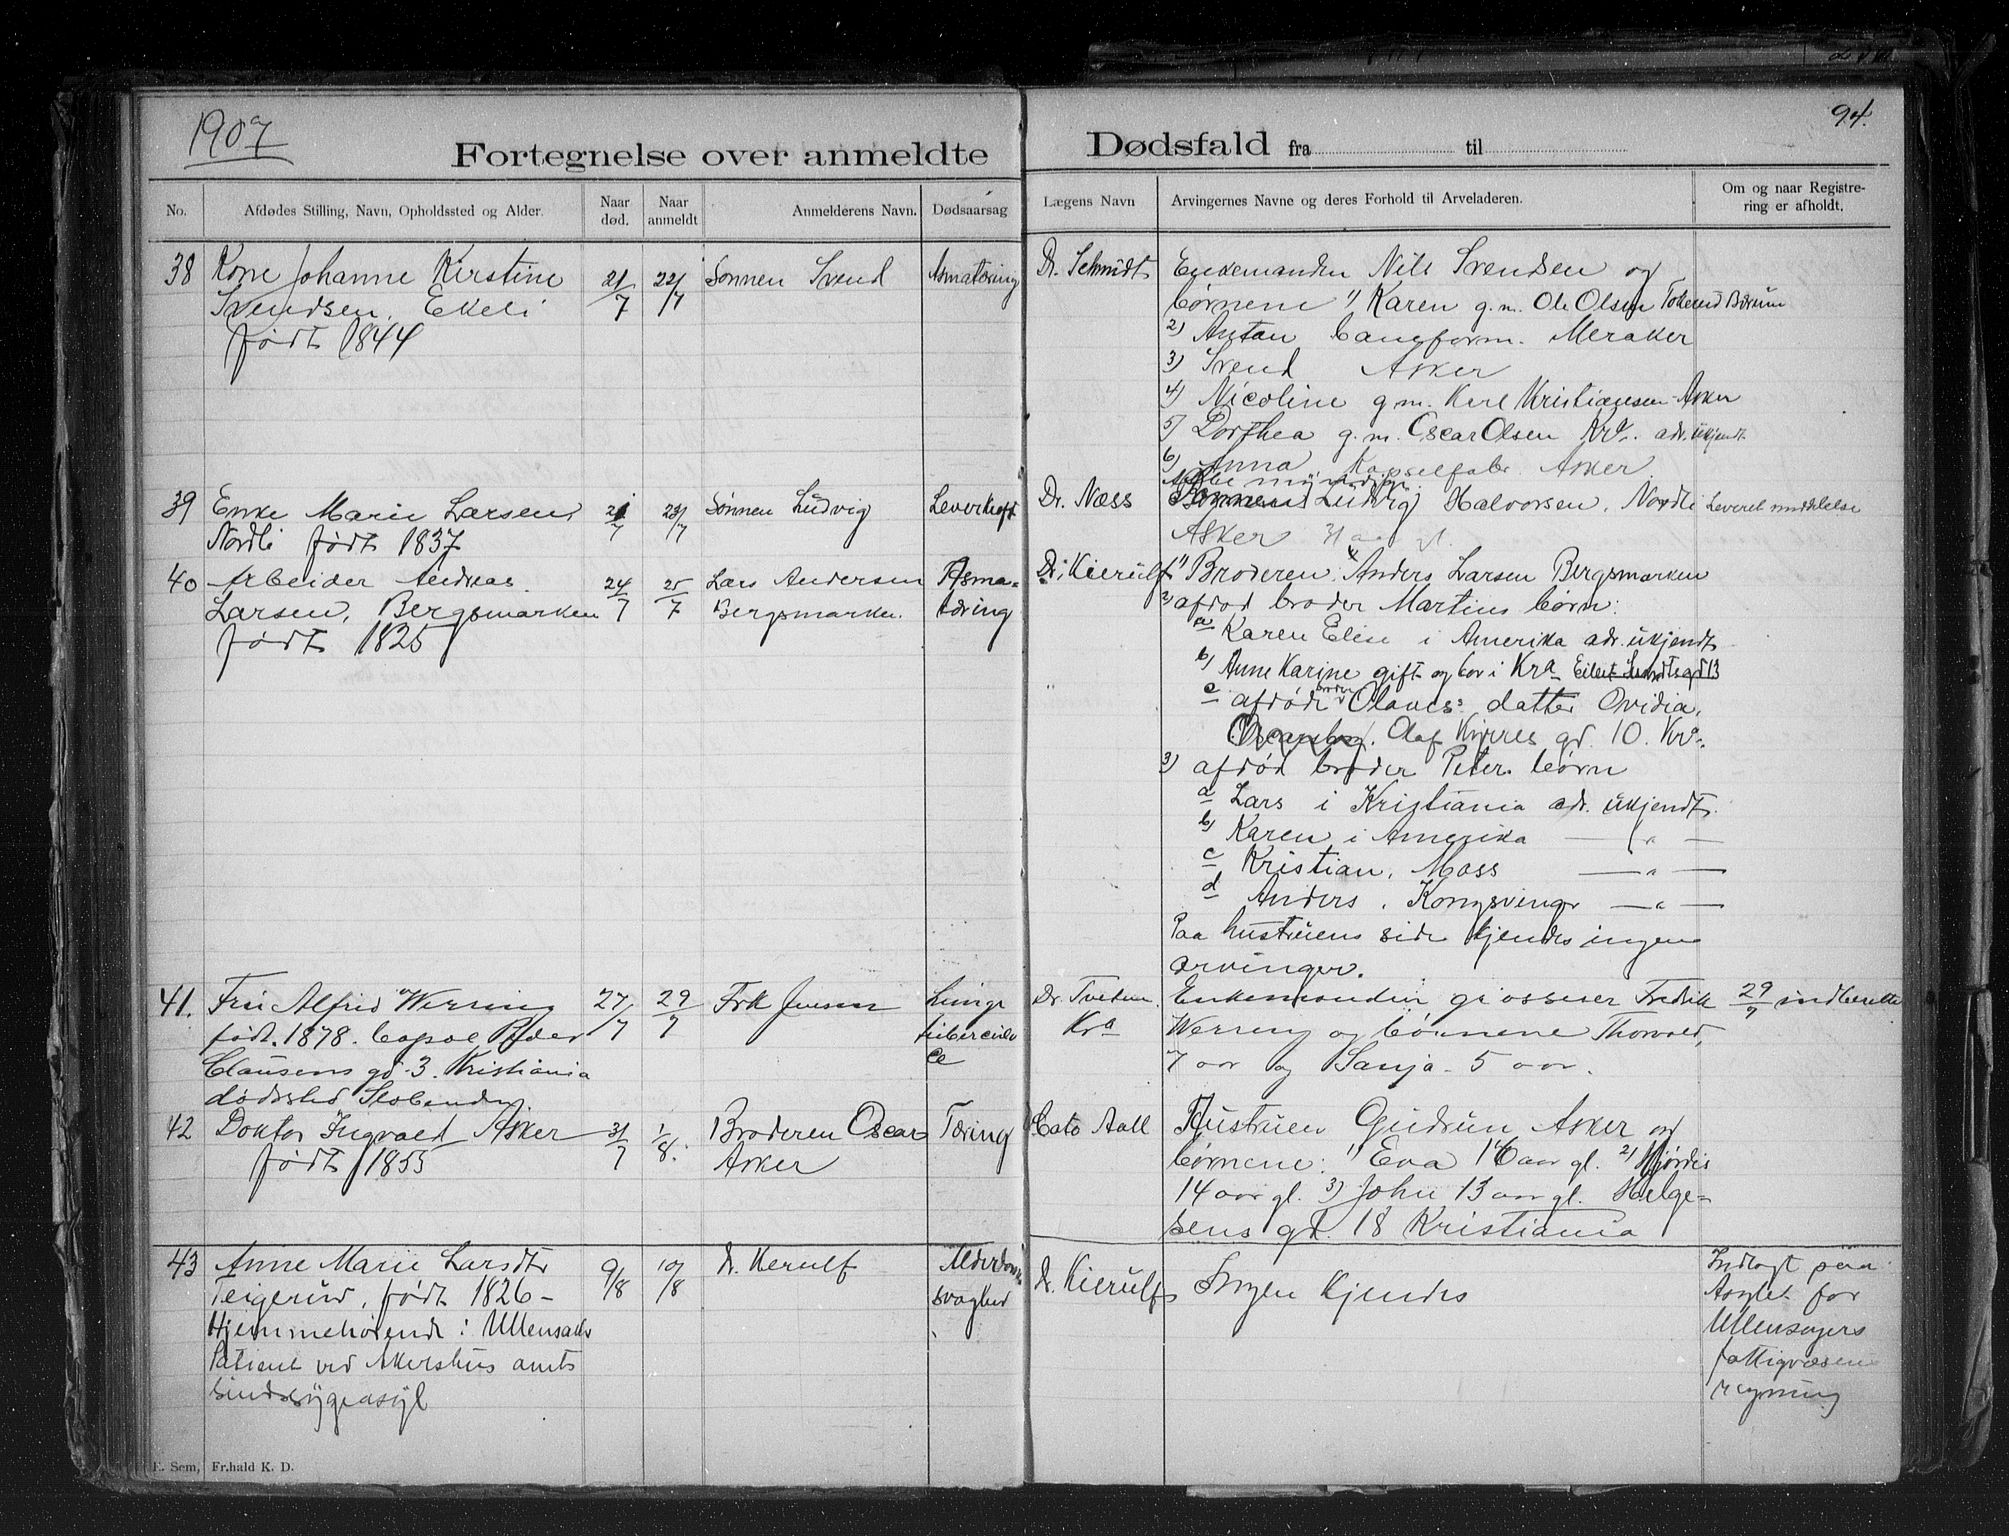 1907
94.
Fortegnelse over anmeldte Dødsfald fra til
No.
Afdødes Stilling, Navn, Opholdssted og Alder.
Naar død.
Naar anmeldt
Anmelderens Navn.
Dødsaarsag
Lægens Navn
Arvingernes Navne og deres Forhold til Arveladeren.
Om og naar Registre-
ring er afholdt.
38 Kone Johanne Kirstine
Svendsen, Ekeli
født 1844
21/7
22/7
Sønnen Svend
Dr. Schmidt
Enkemanden Nils Svendsen og
børnene 1) Karen g.m. Ole Olsen Tokerud Bærum
2) Anton Meraker
3) Svend Asker
4) Nicoline g.m. Karl Kristiansen Asker
5) Dorthea g.m. Oscar Olsen Kra. adr. ukjendt
6) Anna Kapselfabr. Asker
Alle myndige
39 Enke Marie Larsen,
Nordli født 1837
Sønnen Ludvig
Leverkræft
Dr. Næss
Sønnen Ludvig Halvorsen, Nordli
Asker
Leveret meddelelse
40 Arbeider Andreas
Larsen, Bergsmarken
født 1825
24/7
25/7
Lars Andersen
Bergsmarken.
Asma-
tæring
Dr. Kierulf
1) Broderen Anders Larsen Bergsmarken
2) afdød broder Martins børn:
a Karen Elise i Amerika adr. ukjendt
b) Anne Karine gift og bor i Kra Eilert Sundts gd 13
c afdøde broder Olaves' datter Ovidia,
Olaf Kyrres gd. 10. Kra.
3) afdød broder Peters børn
a Lars i Kristiania adr. ukjendt.
b) Karen i Amerika — " —
c Kristian, Moss — " —
d Anders, Kongsvinger — " —
Paa hustruens side kjendes ingen
arvinger.
41. Fru Alfrid Werring
født 1878. Peder
Clausens gd. 3. Kristiania
dødssted Slobenden
27/7
29/7
Frk Jensen
Lunge
tuberculo
se
Dr. Tvedten
Kra
Enkemanden grosserer Fredrik
Werring og børnene Thorvald,
7 aar og Sanja 5 aar.
29/7 indberettet
42 Doktor Ingvald Asker
født 1855
31/7
1/8.
Broderen Oscar
Asker
Tæring
Cato Aall
Hustruen Gudrun Asker og
børnene: 1) Eva 16 aar gl. 2) Hjørdis
14 aar gl. 3) John 13 aar gl. Helge-
sens gd. 18 Kristiania
43 Anne Marie Larsdtr
Teigerud, født 1826 -
Hjemmehørende i Ullensaker
Patient ved Akershus amts
sindssygeasyl
9/8
10/8
Dr. Kerulf
Alderdoms
svaghed
Dr. Kierulf
Ingen Kjendes
Indlagt paa
Asylet for
Ullensagers
fattigvæsens
regning
E. Sem, Fr.hald K. D.